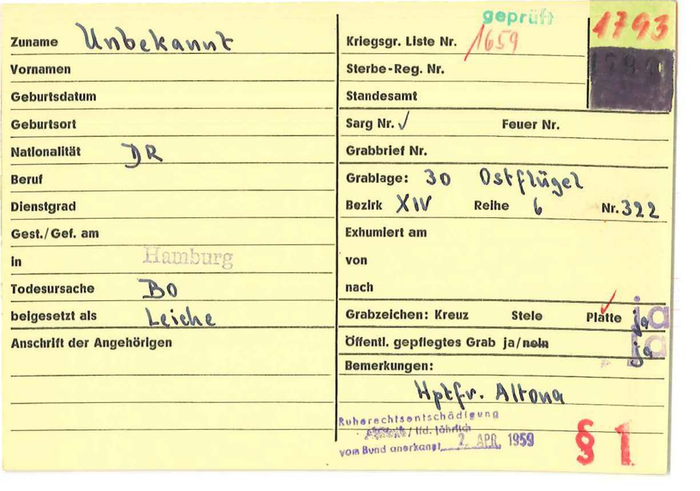 geprüft
1793
Zuname Unbekannt
Vornamen
Geburtsdatum
Geburtsort
Nationalität DR
Beruf
Dienstgrad
Gest./Gef. am
in Hamburg
Todesursache BO
beigesetzt als Leiche
Anschrift der Angehörigen
Kriegsgr. Liste Nr. 1659
Sterbe-Reg. Nr.
Standesamt
Sarg Nr. ✓ Feuer Nr.
Grabbrief Nr.
Grablage: 30 Ostflügel
Bezirk XIV Reihe 6 Nr. 322
Exhumiert am
von
nach
Grabzeichen: Kreuz Stele Platte ja
Öffentl. gepflegtes Grab ja/nein ja
Bemerkungen:
Hptfr. Altona
Ruherechtsentschädigung
/ lfd. jährlich
vom Bund anerkannt 2. APR. 1959
§ 1